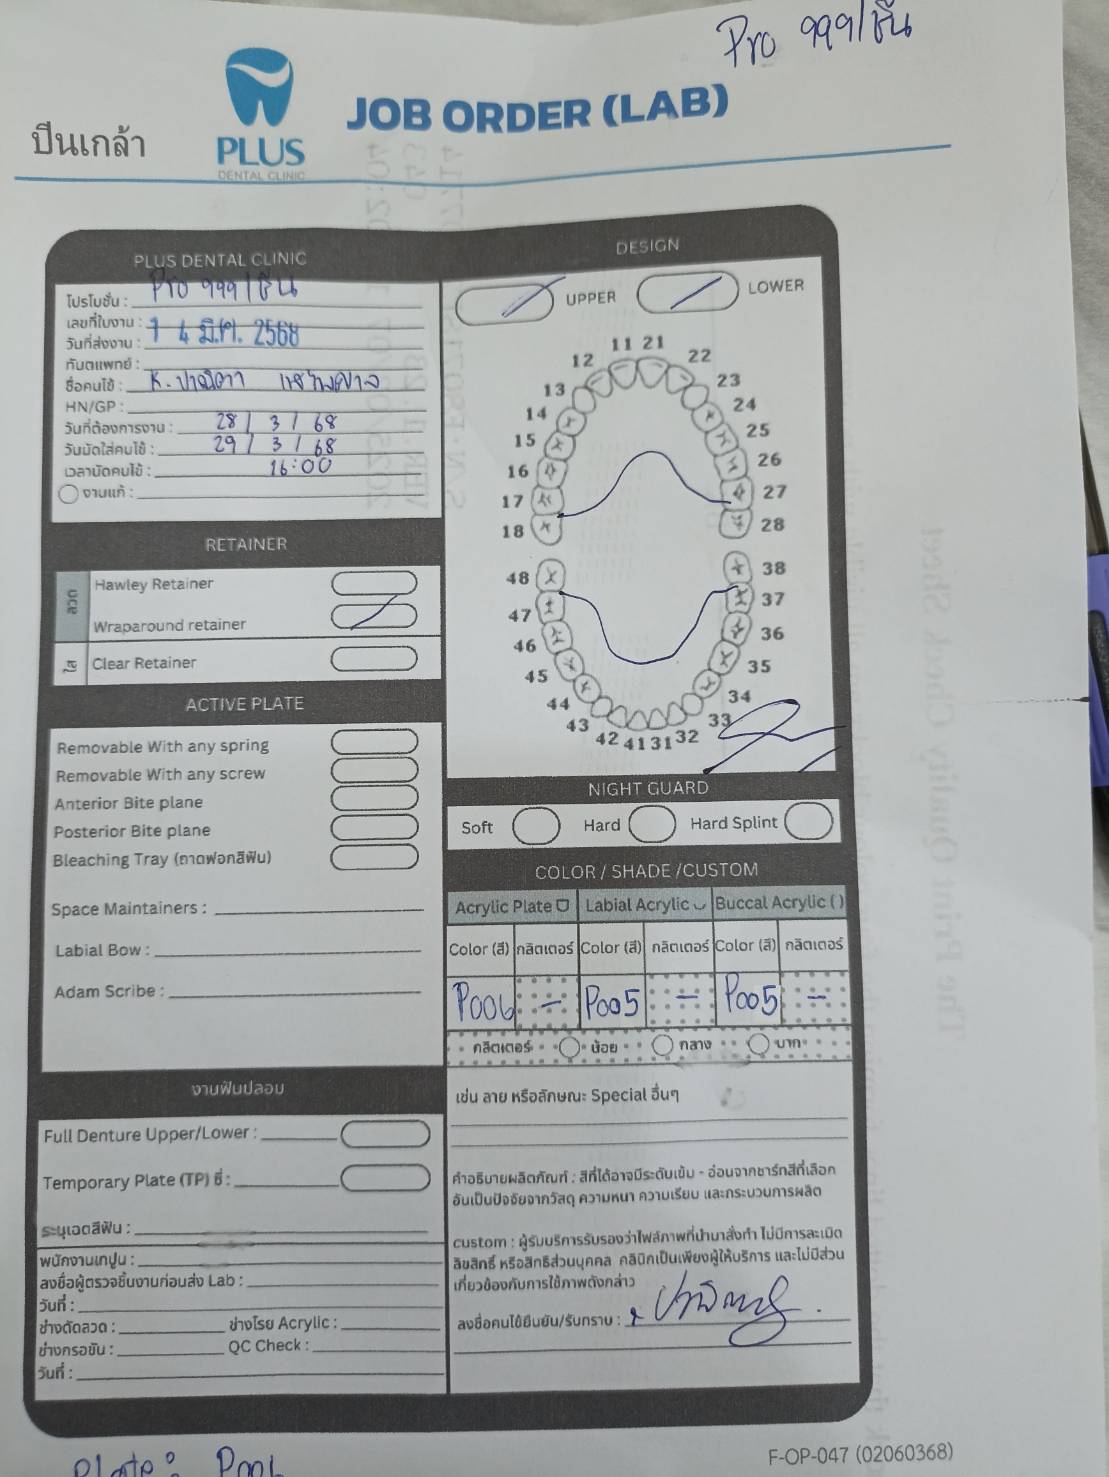 Pro 999/ชิ้น
ปิ่นเกล้า
PLUS
DENTAL CLINIC
JOB ORDER (LAB)
PLUS DENTAL CLINIC
โปรโมชั่น : Pro 999/ชิ้น
เลขที่ใบงาน :
วันที่ส่งงาน : 1 4 มี.ค. 2568
ทันตแพทย์ :
ชื่อคนไข้ : K.
HN/GP :
วันที่ต้องการงาน : 28 / 3 / 68
วันนัดใส่คนไข้ : 29 / 3 / 68
เวลานัดคนไข้ : 16:00
งานแก้ :
RETAINER
ลวด
Hawley Retainer
Wraparound retainer
ใส
Clear Retainer
ACTIVE PLATE
Removable With any spring
Removable With any screw
Anterior Bite plane
Posterior Bite plane
Bleaching Tray (ถาดฟอกสีฟัน)
Space Maintainers :
Labial Bow :
Adam Scribe :
งานฟันปลอม
Full Denture Upper/Lower :
Temporary Plate (TP) ซี่ :
ระบุเฉดสีฟัน :
พนักงานเทปูน :
ลงชื่อผู้ตรวจชิ้นงานก่อนส่ง Lab :
วันที่ :
ช่างดัดลวด : ช่างโรย Acrylic :
ช่างกรอขัน : QC Check :
วันที่ :
DESIGN
UPPER LOWER
11 21
12 22
13 23
14 24
15 25
16 26
17 27
18 28
48 38
47 37
46 36
45 35
44 34
43 33
42 41 31 32
NIGHT GUARD
Soft Hard Hard Splint
COLOR / SHADE /CUSTOM
Acrylic Plate Labial Acrylic Buccal Acrylic ( )
Color (สี) กลิตเตอร์ Color (สี) กลิตเตอร์ Color (สี) กลิตเตอร์
P006 - P005 - P005 -
กลิตเตอร์ น้อย กลาง มาก
เช่น ลาย หรือลักษณะ Special อื่นๆ
คำอธิบายผลิตภัณฑ์ : สีที่ได้อาจมีระดับเข้ม - อ่อนจากชาร์ทสีที่เลือก
อันเป็นปัจจัยจากวัสดุ ความหนา ความเรียบ และกระบวนการผลิต
custom : ผู้รับบริการรับรองว่าไฟล์ภาพที่นำมาสั่งทำ ไม่มีการละเมิด
ลิขสิทธิ์ หรือสิทธิส่วนบุคคล คลินิกเป็นเพียงผู้ให้บริการ และไม่มีส่วน
เกี่ยวข้องกับการใช้ภาพดังกล่าว
ลงชื่อคนไข้ยืนยัน/รับทราบ :
F-OP-047 (02060368)
Plate : P006